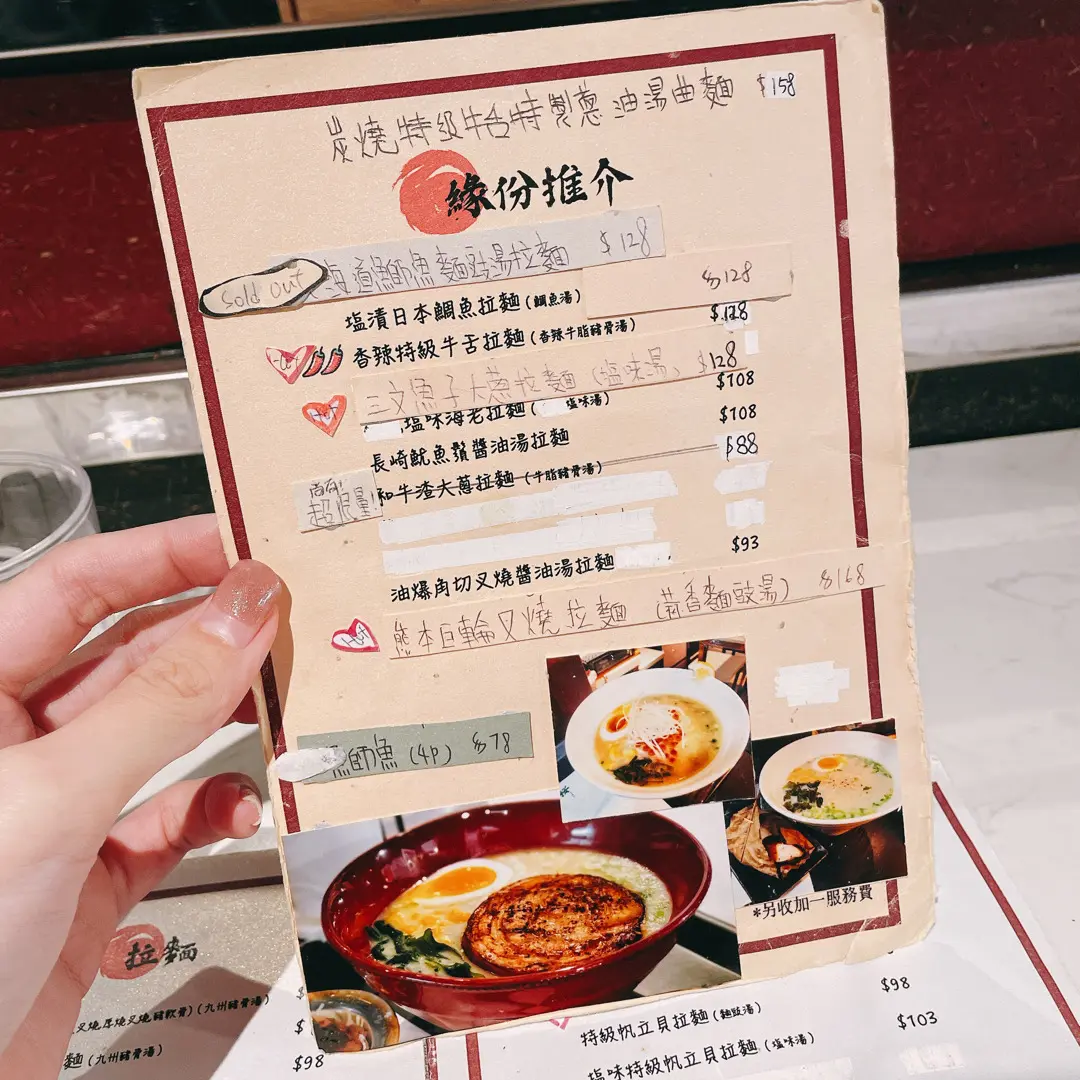 炭燒特級牛舌特製蔥油湯曲麵 $158
緣份推介
Sold out 海道鰤魚麵豉湯拉麵 $128
塩漬日本鯛魚拉麵(鯛魚湯) $128
Hot 香辣特級牛舌拉麵(香辣牛脂豬骨湯) $128
Hot 三文魚子大蔥拉麵(塩味湯) $128
塩味海老拉麵(塩味湯) $108
長崎魷魚鬚醬油湯拉麵 $108
尚有!
超限量!
和牛渣大蔥拉麵(牛脂豬骨湯) $88
油爆角切叉燒醬油湯拉麵 $93
Hot 熊本巨輪叉燒拉麵(蒜香麵豉湯) $168
鰤魚(4p) $78
*另收加一服務費
拉麵
叉燒厚燒叉燒豬軟骨)(九州豬骨湯) $
麵(九州豬骨湯) $98
$98
特級帆立貝拉麵(麵豉湯) $103
塩味特級帆立貝拉麵(塩味湯)